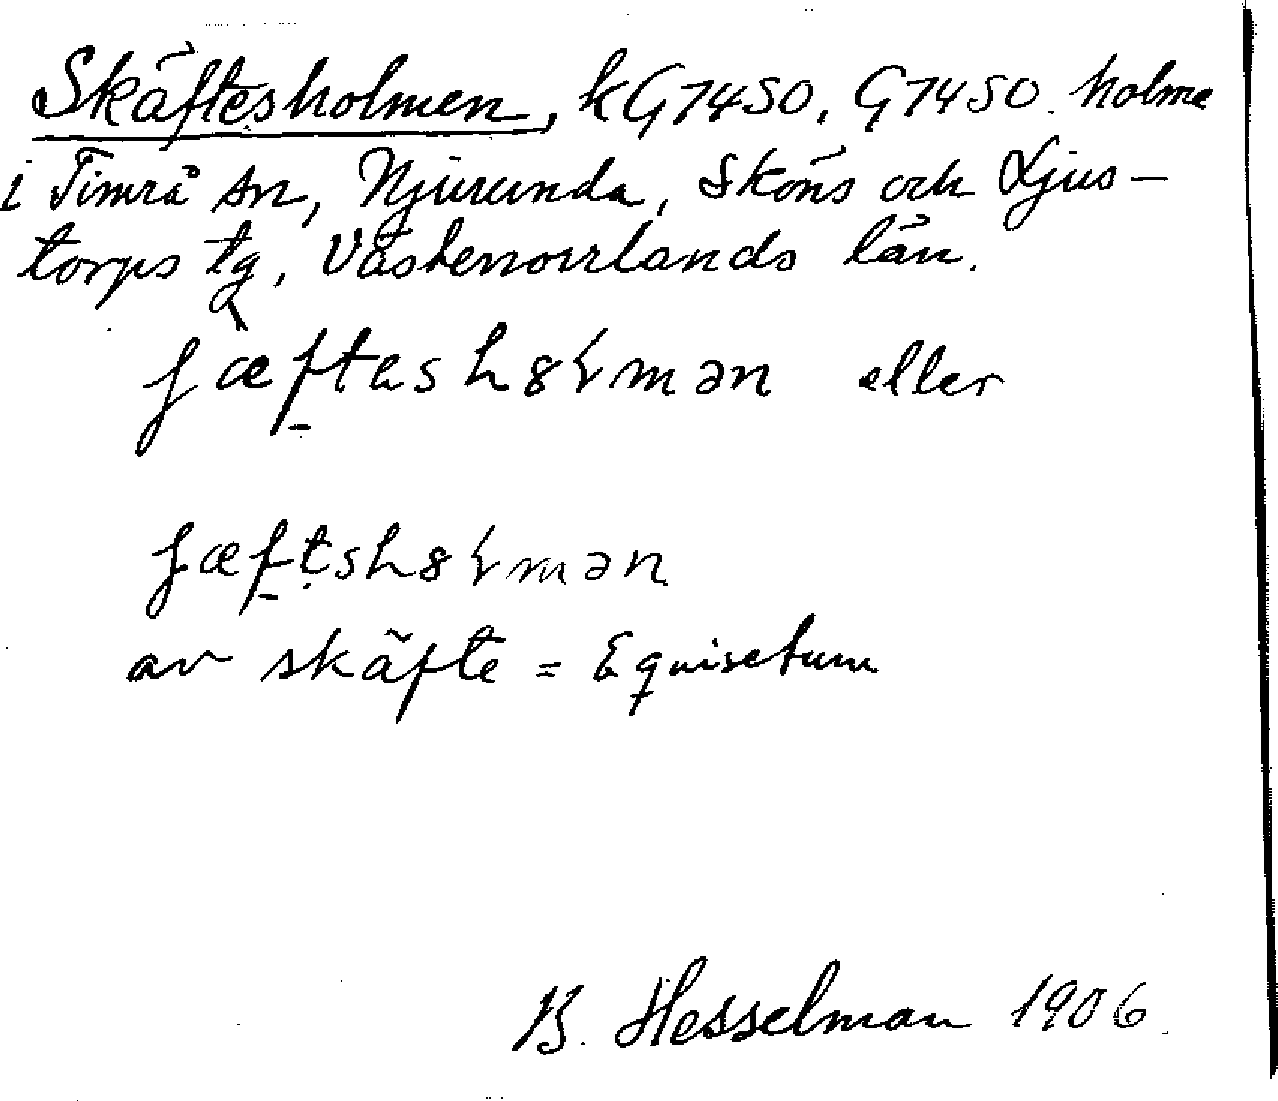 Skäftesholmen, kG7450, G7450. holme
i Timrå sn, Njurunda, Sköns och Ljus-
torps tg, Västernorrlands län.
ʃæftəshɵɽmən eller
ʃæftshɵɽmən
av skäfte = Equisetum
B. Hesselman 1906